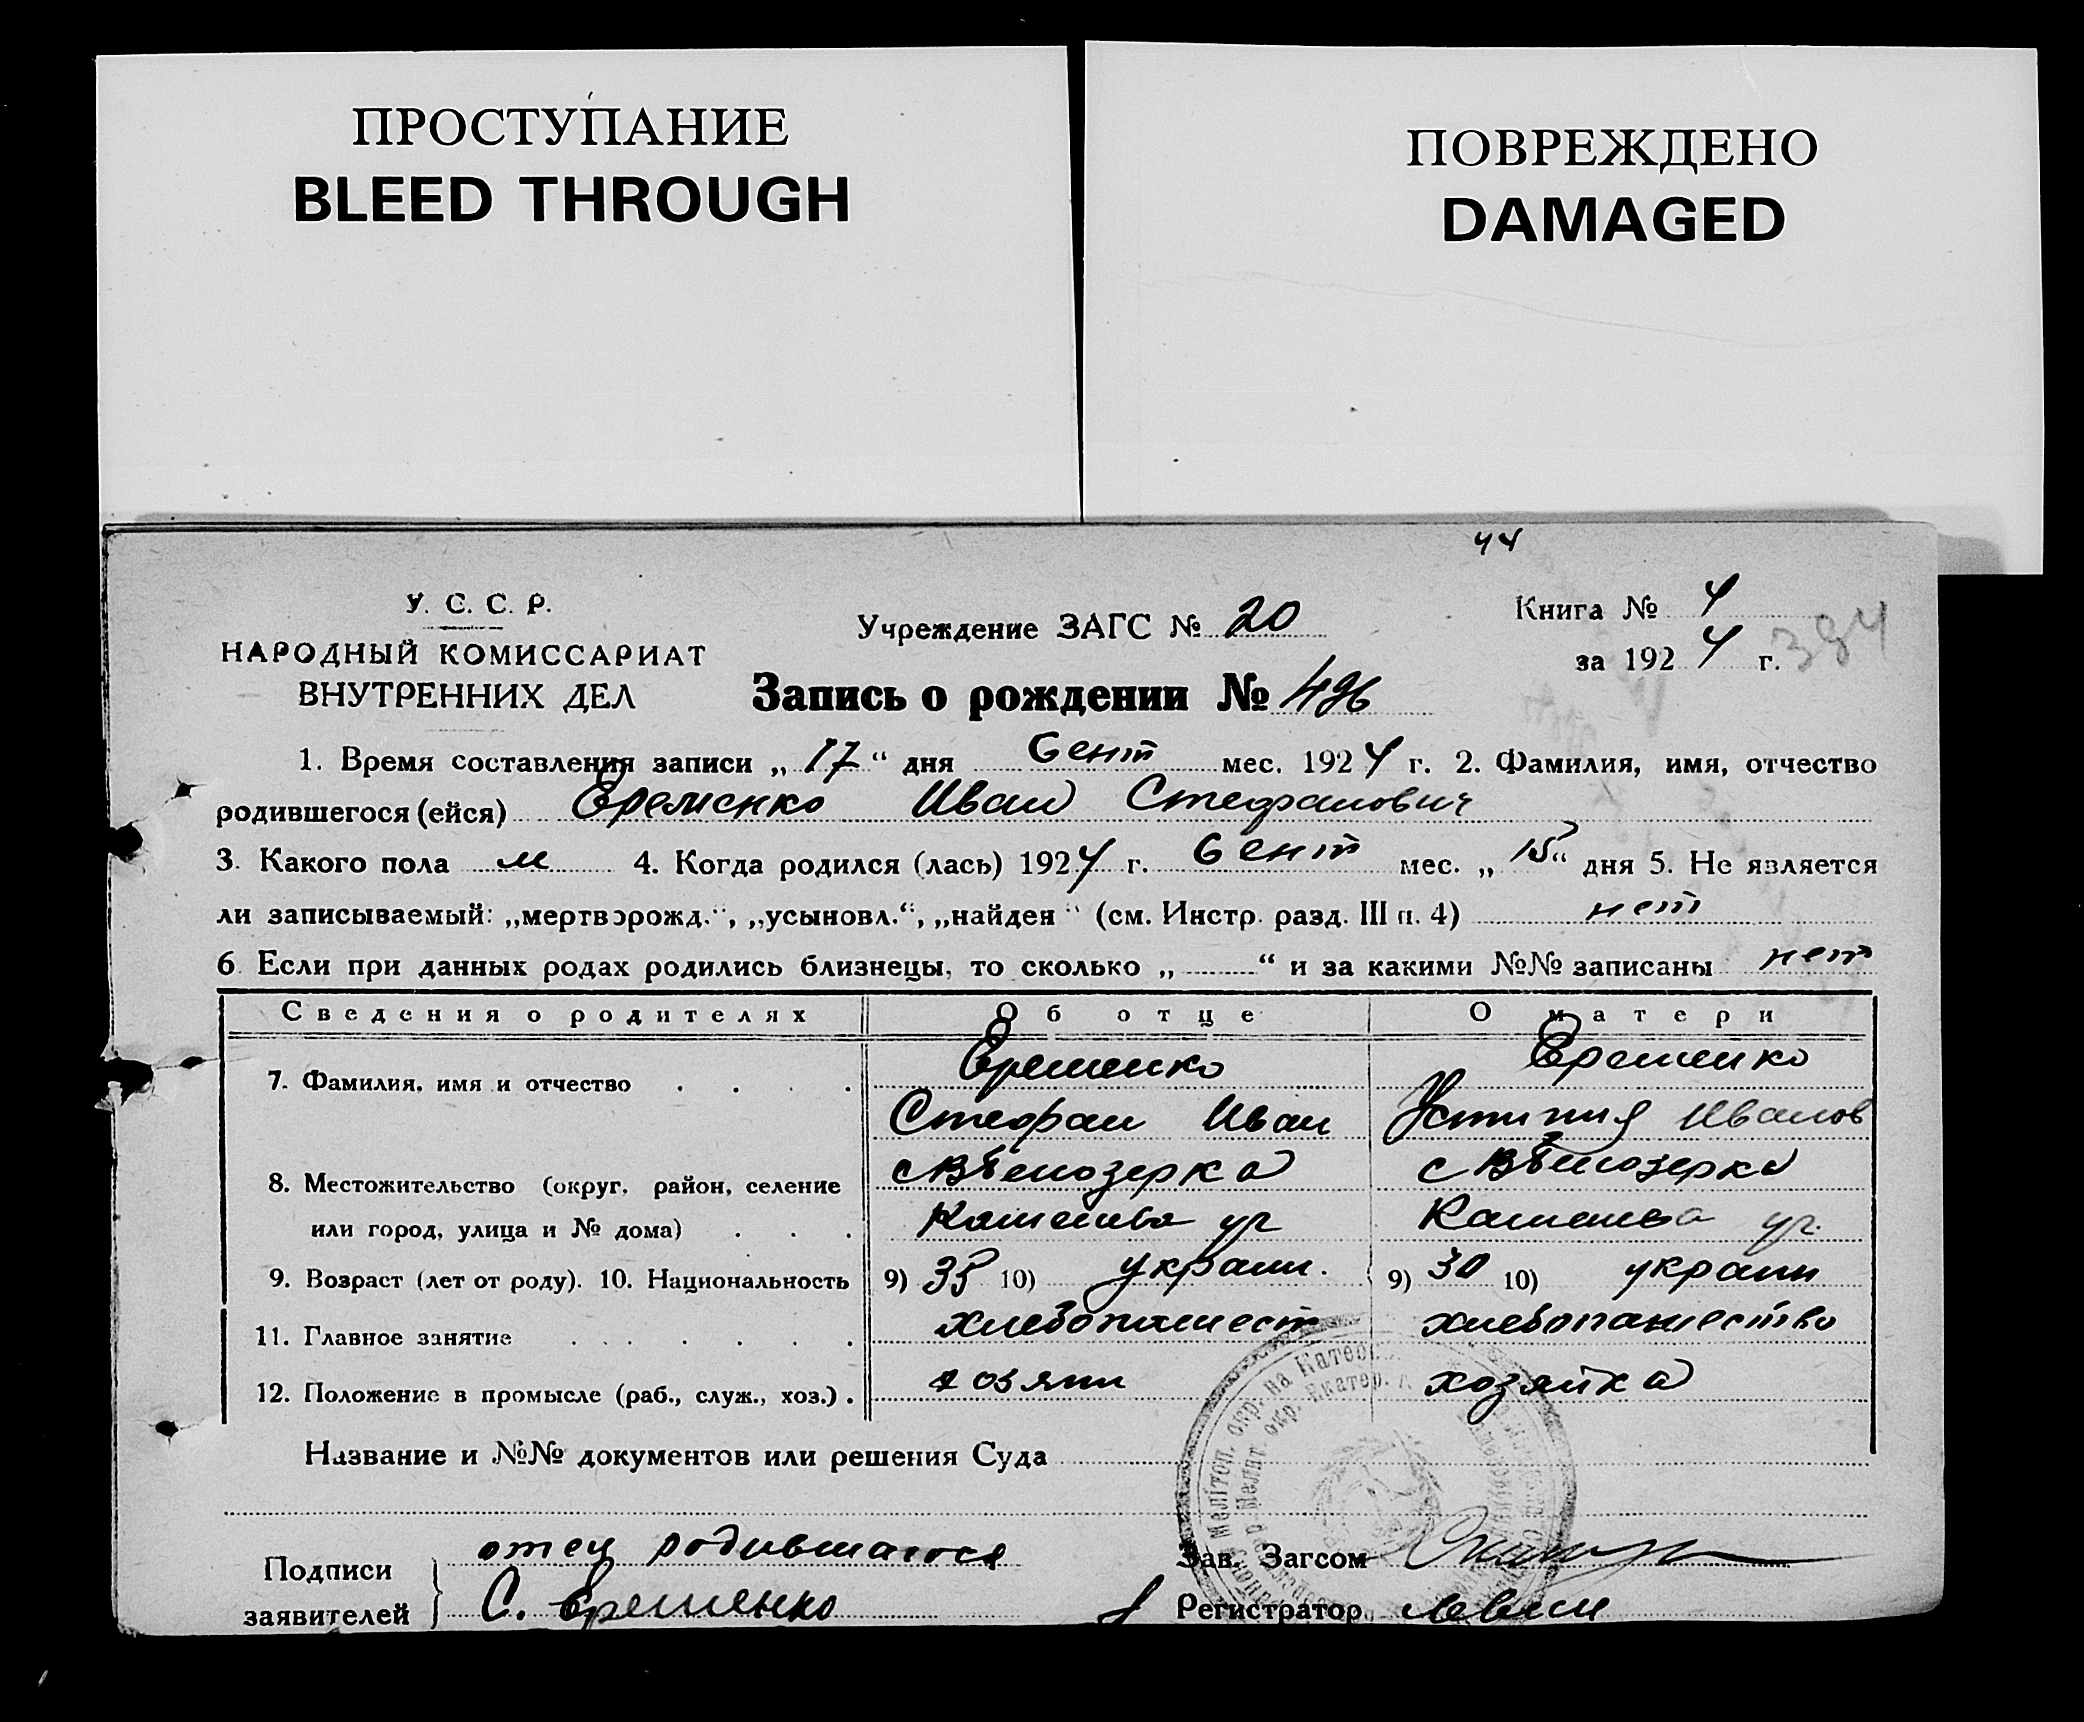 ПРОСТУПАНИЕ
BLEED THROUGH
ПОВРЕЖДЕНО
DAMAGED
44
У. С. С. Р.
НАРОДНЫЙ КОМИССАРИАТ
ВНУТРЕННИХ ДЕЛ
Учреждение ЗАГС № 20
Книга № 4
за 1924 г. 384
Запись о рождении № 496
1. Время составления записи „17“ дня Сент мес. 1924 г. 2. Фамилия, имя, отчество
родившегося (ейся) Еременко Иван Стефанович
3. Какого пола м 4. Когда родился (лась) 1924 г. Сент мес. „15“ дня 5. Не является
ли записываемый: „мертворожд.“, „усыновл.“, „найден“ (см. Инстр. разд. III п. 4) нет
6. Если при данных родах родились близнецы, то сколько „ “ и за какими №№ записаны нет
Сведения о родителях Об отце О матери
7. Фамилия, имя и отчество Еременко Еременко
Стефан Иван Устиния Иванов
8. Местожительство (округ, район, селение с ВБелозерка с ВБелозерка
или город, улица и № дома)
9. Возраст (лет от роду). 10. Национальность 9) 35 10) украин. 9) 30 10) украин
11. Главное занятие хлебопашест хлебопашество
12. Положение в промысле (раб., служ., хоз.) хозяин хозяйка
Название и №№ документов или решения Суда
Подписи
заявителей
отец родившагося
С. Еременко
Зав. Загсом
Регистратор
Меліτоп. окр. на Катер